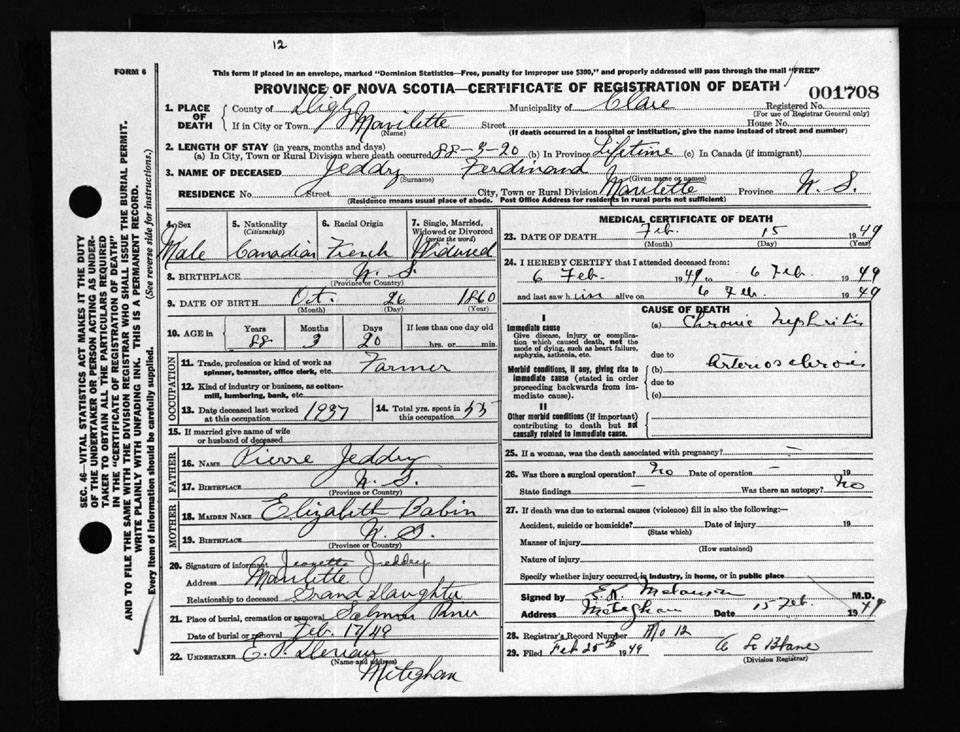 12
FORM 6
This form if placed in an envelope, marked "Dominion Statistics—Free, penalty for improper use $300," and properly addressed will pass through the mail "FREE"
PROVINCE OF NOVA SCOTIA—CERTIFICATE OF REGISTRATION OF DEATH
001708
1. PLACE OF DEATH
County of Digby Municipality of Clare Registered No.
(For use of Registrar General only)
If in City or Town Mavilette Street House No.
(Name) (If death occurred in a hospital or institution, give the name instead of street and number)
2. LENGTH OF STAY (in years, months and days)
(a) In City, Town or Rural Division where death occurred 88-3-20 (b) In Province Lifetime (c) In Canada (if immigrant)
3. NAME OF DECEASED Jeddry Ferdinand
(Surname) (Given name or names)
RESIDENCE No. Street City, Town or Rural Division Mavilette Province N. S.
(Residence means usual place of abode. Post Office Address for residents in rural parts not sufficient)
4. Sex
Male
5. Nationality
(Citizenship)
Canadian
6. Racial Origin
French
7. Single, Married, Widowed or Divorced
(write the word)
Widowed
8. BIRTHPLACE N. S.
(Province or Country)
9. DATE OF BIRTH Oct. 26 1860
(Month) (Day) (Year)
10. AGE in
Years Months Days If less than one day old
88 3 20 hrs. or min.
OCCUPATION
11. Trade, profession or kind of work as
spinner, teamster, office clerk, etc. Farmer
12. Kind of industry or business, as cotton-
mill, lumbering, bank, etc.
13. Date deceased last worked
at this occupation 1937
14. Total yrs. spent in
this occupation 55
15. If married give name of wife
or husband of deceased
FATHER
16. NAME Pierre Jeddry
17. BIRTHPLACE N. S.
(Province or Country)
MOTHER
18. MAIDEN NAME Elizabeth Babin
19. BIRTHPLACE N. S.
(Province or Country)
20. Signature of informant Jeanette Jeddry
Address Mavilette
Relationship to deceased Grand daughter
21. Place of burial, cremation or removal Salmon River
Date of burial or removal Feb. 17/49
22. UNDERTAKER E.
(Name and address)
Meteghan
MEDICAL CERTIFICATE OF DEATH
23. DATE OF DEATH Feb. 15 1949
(Month) (Day) (Year)
24. I HEREBY CERTIFY that I attended deceased from:
6 Feb. 1949 to 6 Feb. 1949
and last saw him alive on 6 Feb. 1949
CAUSE OF DEATH
I
Immediate cause
Give disease, injury or complication which caused death, not the mode of dying, such as heart failure, asphyxia, asthenia, etc.
(a) Chronic Nephritis
due to
Morbid conditions, if any, giving rise to immediate cause (stated in order proceeding backwards from immediate cause).
(b) Arteriosclerosis
due to
(c)
II
Other morbid conditions (if important) contributing to death but not causally related to immediate cause.
25. If a woman, was the death associated with pregnancy? —
26. Was there a surgical operation? No Date of operation — 19
State findings — Was there an autopsy? No
27. If death was due to external causes (violence) fill in also the following:—
Accident, suicide or homicide? Date of injury 19
(State which)
Manner of injury
(How sustained)
Nature of injury
Specify whether injury occurred in industry, in home, or in public place
Signed by Melanson M.D.
Address Meteghan Date 15 Feb. 1949
28. Registrar's Record Number No 12
29. Filed Feb 25th 1949 LeBlanc
(Division Registrar)
SEC. 46—VITAL STATISTICS ACT MAKES IT THE DUTY
OF THE UNDERTAKER OR PERSON ACTING AS UNDER-
TAKER TO OBTAIN ALL THE PARTICULARS REQUIRED
IN THE "CERTIFICATE OF REGISTRATION OF DEATH"
AND TO FILE THE SAME WITH THE DIVISION REGISTRAR WHO SHALL ISSUE THE BURIAL PERMIT.
WRITE PLAINLY WITH UNFADING INK. THIS IS A PERMANENT RECORD.
Every item of information should be carefully supplied. (See reverse side for instructions.)